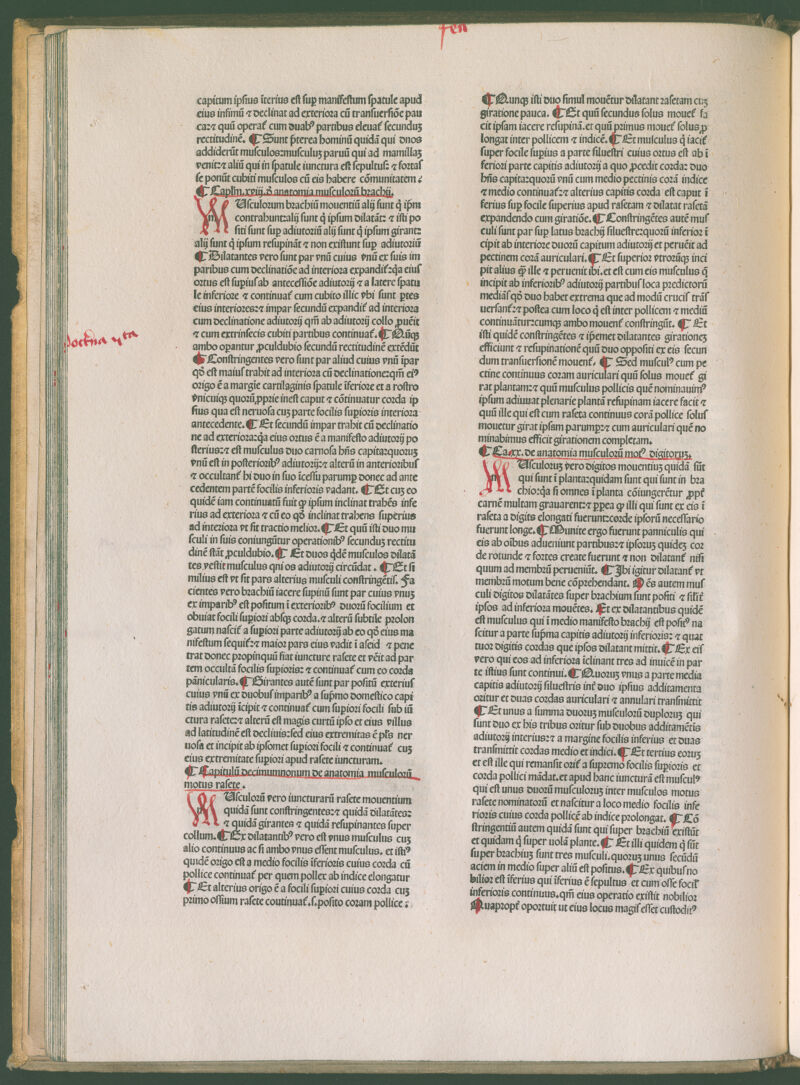 fen
capitum ipsius īterius est sup̱ manifestum spatule apud
eius infimū ⁊ declinat ad exteriora cū transuersiōe pau
ca:⁊ quū operat᷑ cum duabꝰ partibus eleuat᷑ secunduꝫ
rectitudinē. ¶ Sunt p̄terea hominū quidā qui duos
addiderūt musculos:musculuꝫ paruū qui ad mamillaꝫ
venit:⁊ aliū qui in spatule iunctura est sepultus: ⁊ fortas̄
se ponūt cubiti musculos cū eis habere cōmunitatem:
¶ Caplm̄.xviij.d̄ anatomia musculorū brachij.
MUsculorum brachiū mouentiū alij sunt q̄ ip̄m
contrahunt:alij sunt q̄ ipsum dilatāt: ⁊ isti po
siti sunt sup adiutoriū alij sunt q̄ ipsum girant:
alij sunt q̄ ipsum resupināt ⁊ non existunt sup̱ adiutoriū
¶ Dilatantes vero sunt par vnū cuius vnū ex suis im
paribus cum declinatiōe ad interiora expandit᷑:q̄a eiuꝰ
ortus est supiusab antecessiōe adiutorij ⁊ a latere spatu
le inferiore ⁊ continuat᷑ cum cubito illic vbi sunt p̄tes
eius interiores:⁊ impar secundū expandit᷑ ad interiora
cum declinatione adiutorij qm̄ ab adiutorij collo ꝓuēit
⁊ cum extrinsecis cubiti partibus continuat᷑. ¶ Qn̄qꝫ
ambo opantur ꝓculdubio secundū rectitudinē extēdūt
¶ Constringentes vero sunt par aliud cuius vnū īpar
qd̄ est maius trahit ad interiora cū declinatione:qm̄ eiꝰ
origo ē a margīe cartilaginis spatule īferiore et a rostro
vnicuiqꝫ quorū,ꝓprie inest caput ⁊ cōtinuatur corda ip
sius qua est neruosa cuꝫ parte focilis supioris interiora
antecedente. ¶ Et secundū impar trahit cū declinatio
ne ad exteriora:q̄a eius ortus ē a manifesto adiutorij po
sterius:⁊ est musculus duo carnosa hn̄s capita:quoruꝫ
vnū est in posterioribꝰ adiutorij:⁊ alterū in anterioribus
⁊ occultant᷑ hi duo in suo īcessu parump̱ donec ad ante
cedentem partē focilis inferioris vadant. ¶ Et cuꝫ eo
quidē iam continuatū fuit ꝙ ipsum inclinat trahēs infe
rius ad exteriora ⁊ cū eo qd̄ inclinat trahens superius
ad interiora vt sit tractio melior. ¶ Et quū isti duo mu
sculi in suis coniunguntur operationibꝰ secunduꝫ rectitu
dinē stāt ꝓculdubio. ¶ Et duos q̄dē musculos dilatā
tes vestit musculus qui os adiutorij circūdat . ¶ Et si
milius est vt sit pars alterius musculi constringētis. Fa
cientes vero brachiū iacere supinū sunt par cuius vnuꝫ
ex imparibꝰ est positum ī exterioribꝰ duorū focilium et
obuiat focili supiori absqꝫ corda.⁊ alterū subtile prolon
gatum nascit᷑ a supiori parte adiutorij ab eo qd̄ eius ma
nifestum sequit᷑:⁊ maior pars eius vadit ī aseid ⁊ pene
trat donec propinquū fiat iuncture rasete et veit ad par
tem occultā focilis supioris: ⁊ continuat᷑ cum eo corda
pānicularis. ¶ Girantes autē sunt par positū exteriuꝰ
cuius vnū ex duobus imparibꝰ a sup̄mo domestico capi
tis adiutorij īcipit ⁊ continuat᷑ cum supiori focili sub iū
ctura rasete:⁊ alterū est magis curtū ipso et eius villus
ad latitudinē est decliuis:sed eius extremitas ē pl̄s ner
uosa et incipit ab ipsomet supiori focili ⁊ continuat᷑ cuꝫ
eius extremitate supiori apud rasete iuncturam.
¶ Capitulū decimumnonum de anatomia musculorū
motus rasete.
MUsculorū vero iuncturarū rasete mouentium
quidā sunt constringentes:⁊ quidā dilatātes:
⁊ quidā girantes ⁊ quidā resupinantes super
collum. ¶ Ex dilatantibꝰ vero est vnus musculus cuꝫ
alio continuus ac si ambo vnus essent musculus. et istiꝰ
quidē origo est a medio focilis īferioris cuius corda cū
pollice continuat᷑ per quem pollex ab indice elongatur
¶ Et alterius origo ē a focili supiori cuius corda cuꝫ
primo ossium rasete coutinuat᷑.s.posito coram pollice :
¶ Qunqꝫ isti duo simul mouētur dilatant rasetam cuꝫ
giratione pauca. ¶ Et quū secundus solus mouet᷑ fa
cit ipsam iacere resupinā.et quū primus mouet᷑ solusꝓ
longat inter pollicem ⁊ indicē. ¶ Et musculus q̄ iacit᷑
super focile supius a parte siluestri cuius ortus est ab ī
feriori parte capitis adiutorij a quo ꝓcedit corda: duo
hn̄s capita:quorū vnū cum medio pectinis corā indice
⁊ medio continuat᷑:⁊ alterius capitis corda est caput ī
ferius sup focile superius apud rasetam ⁊ dilatat rasetā
expandendo cum giratiōe. ¶ Constringētes autē mus
culi sunt par sup latus brachij siluestre:quorū inferior ī
cipit ab interiore duorū capitum adiutorij et peruēit ad
pectinem corā auriculari. ¶ Et superior vtrorūqꝫ inci
pit alius ꝙ ille ⁊ peruenit ibi.et est cum eis musculus q̄
incipit ab inferioribꝰ adiutorij partibus loca predictorū
mediās qd̄ duo habet extrema que ad modū crucis trās
uersant᷑:⁊ postea cum loco q̄ est inter pollicem ⁊ mediū
continuātur:cumqꝫ ambo mouent᷑ constringūt. ¶ Et
isti quidē constringētes ⁊ ipemet dilatantes girationes
efficiunt ⁊ resupinationē quū duo oppositi ex eis secun
dum transuersionē mouent᷑. ¶ Sed musculꝰ cum pe
ctine continuus coram auriculari quū solus mouet᷑ gi
rat plantam:⁊ quū musculus pollicis quē nominauimꝰ
ipsum adiuuat plenarie plantā resupinam iacere facit ⁊
quū ille qui est cum raseta continuus corā pollice solus
mouetur girat ipsam parump̱:⁊ cum auriculari quē no
minabimus efficit girationem completam.
¶ Ca.xx.de anatomia musculorū motꝰ digitoruꝫ.
MUsculorus vero digitos mouentius quidā sūt
qui sunt ī planta:quidam sunt qui sunt in bra
chio:q̄a si omnes ī planta cōiungerētur ꝓpt᷑
carnē multam grauarent:⁊ ꝓpea ꝙ illi qui sunt ex eis ī
raseta a digitis elongati fuerunt:corde ipsorū necessario
fuerunt longe. ¶ Munite ergo fuerunt panniculis qui
eis ab oībus adueniunt partibus:⁊ ipsoruꝫ quideꝫ cor
de rotunde ⁊ fortes create fuerunt ⁊ non dilatant᷑ nisi
quum ad membrū perueniūt. ¶ Ibi igitur dilatant᷑ vt
membrū motum bene cōprehendant. ¶ Oēs autem mus
culi digitos dilatātes super brachium sunt positi ⁊ sil̄it᷑
ipsos ad inferiora mouētes. ¶ Et ex dilatantibus quidē
est musculus qui ī medio manifesto brachij est positꝰ na
scitur a parte sup̄ma capitis adiutorij inferioris: ⁊ quat
tuor digitis cordas que ipsos dilatant mittit. ¶ Ex eis
vero qui eos ad inferiora īclinant tres ad inuicē in par
te istius sunt continui. ¶ Quoruꝫ vnus a parte media
capitis adiutorij siluestris int᷑ duo ipsius additamenta
oritur et duas cordas auriculari ⁊ annulari transmittit
¶ Et unus a summa duoruꝫ musculorū duploruꝫ qui
sunt duo ex his tribus oritur sub duobus additamētis
adiutorij interius:⁊ a margine focilis inferius et duas
transmittit cordas medio et indici. ¶ Et tertius eoruꝫ
et est ille qui remansit orit᷑ a supremo focilis supioris et
corda pollici mādat.et apud hanc iuncturā est musculꝰ
qui est unus duorū musculorus inter musculos motus
rasete nominatorū et nascitur a loco medio focilis infe
rioris cuius corda pollicē ab indice prolongat. ¶ Cō
stringentiū autem quidā sunt qui super brachiū existūt
et quidam q̄ super uolā plante. ¶ Et illi quidem q̄ sūt
super brachius sunt tres musculi.quorus unus secūdū
aciem in medio super aliū est positus. ¶ Ex quibus no
bilior est īferius qui īferius ē sepultus et cum osse focil᷑
inferioris continuus.qm̄ eius operatio existit nobilior
¶ Quapropt᷑ oportuit ut eius locus magis esset custoditꝰ